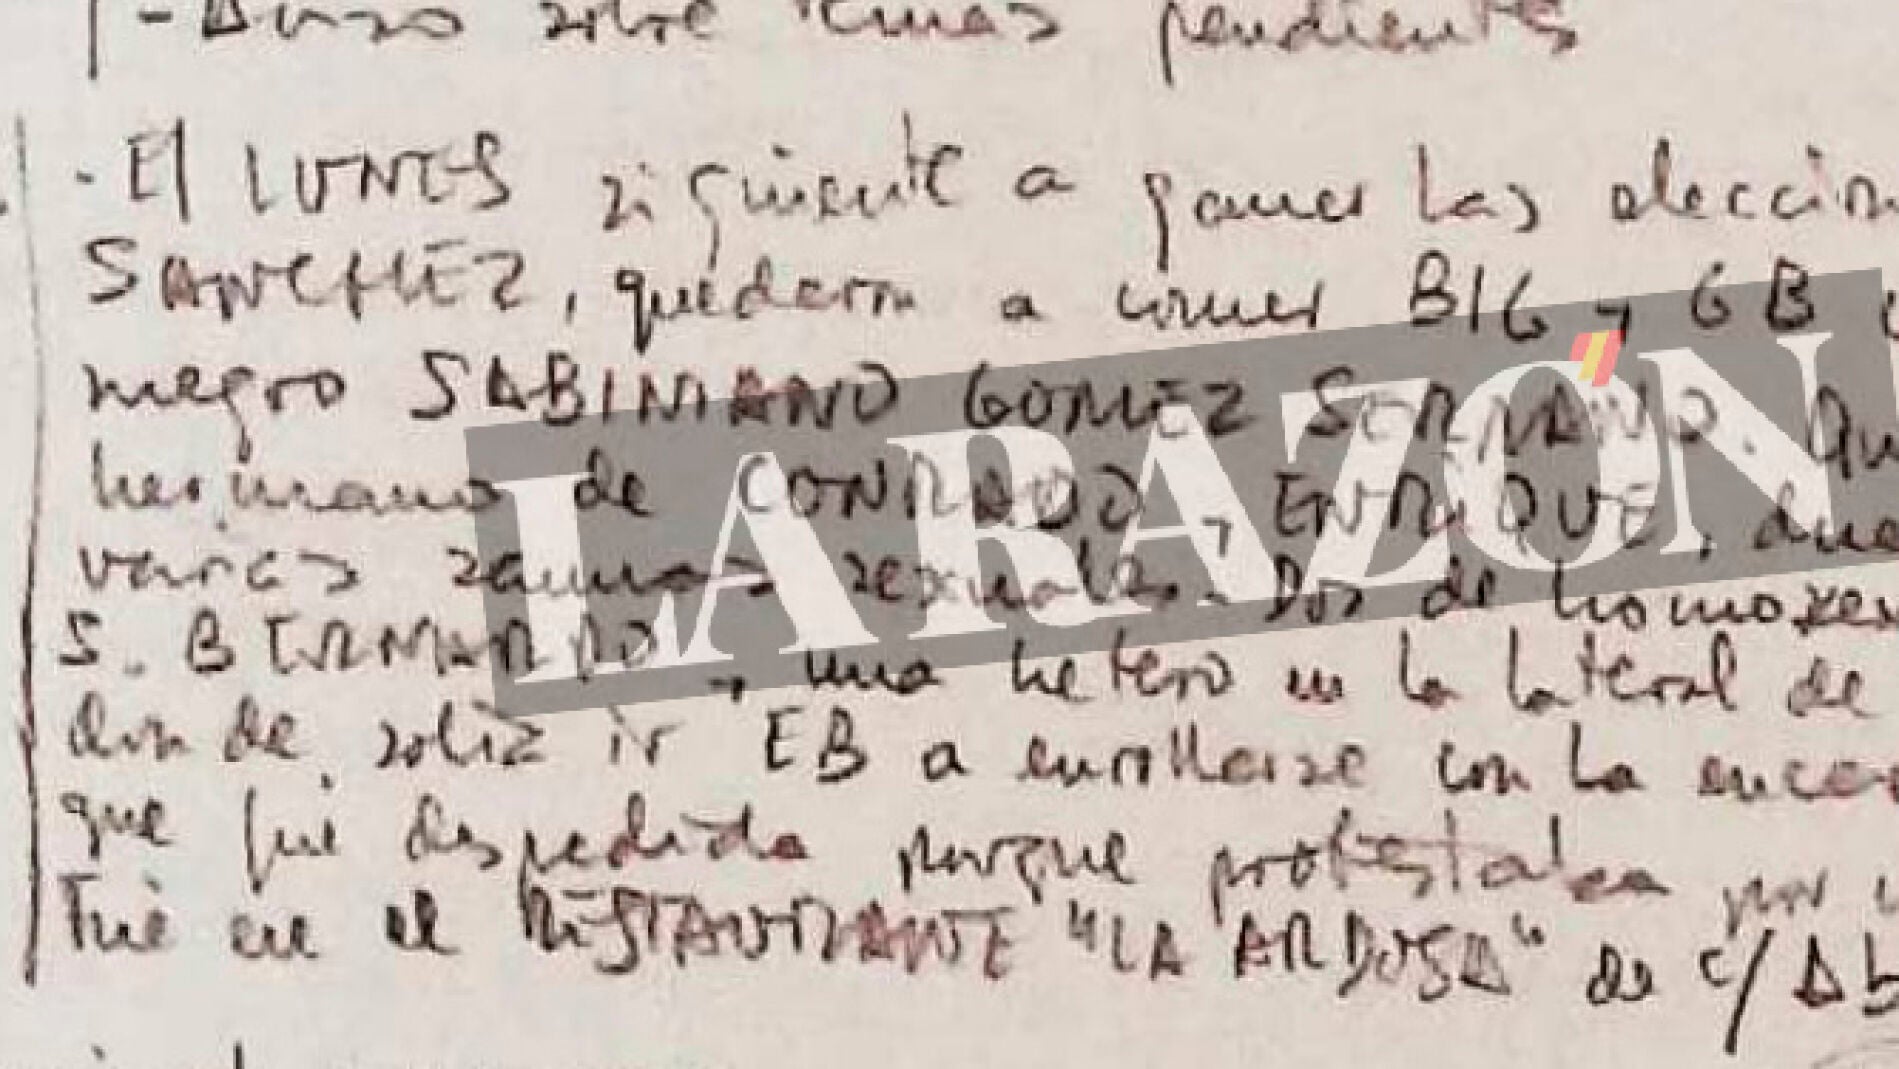 - Buzo sobre temas pendientes
- El LUNES siguiente a ganar las eleccion
SANCHEZ, quedaron a comer BIG y GB
negro SABINIANO GOMEZ SERRANO. Qu
hermano de CONRADO y ENRIQUE, due
varias saunas sexuales. Dos de homosex
S. BERNARDO y una hetero en la lateral de
donde solía ir EB a enrollarse con la enca
que fué despedida porque protestaba por
Fué en el RESTAURANTE "LA ARDOSA" de c/ Ab
LA RAZÓN